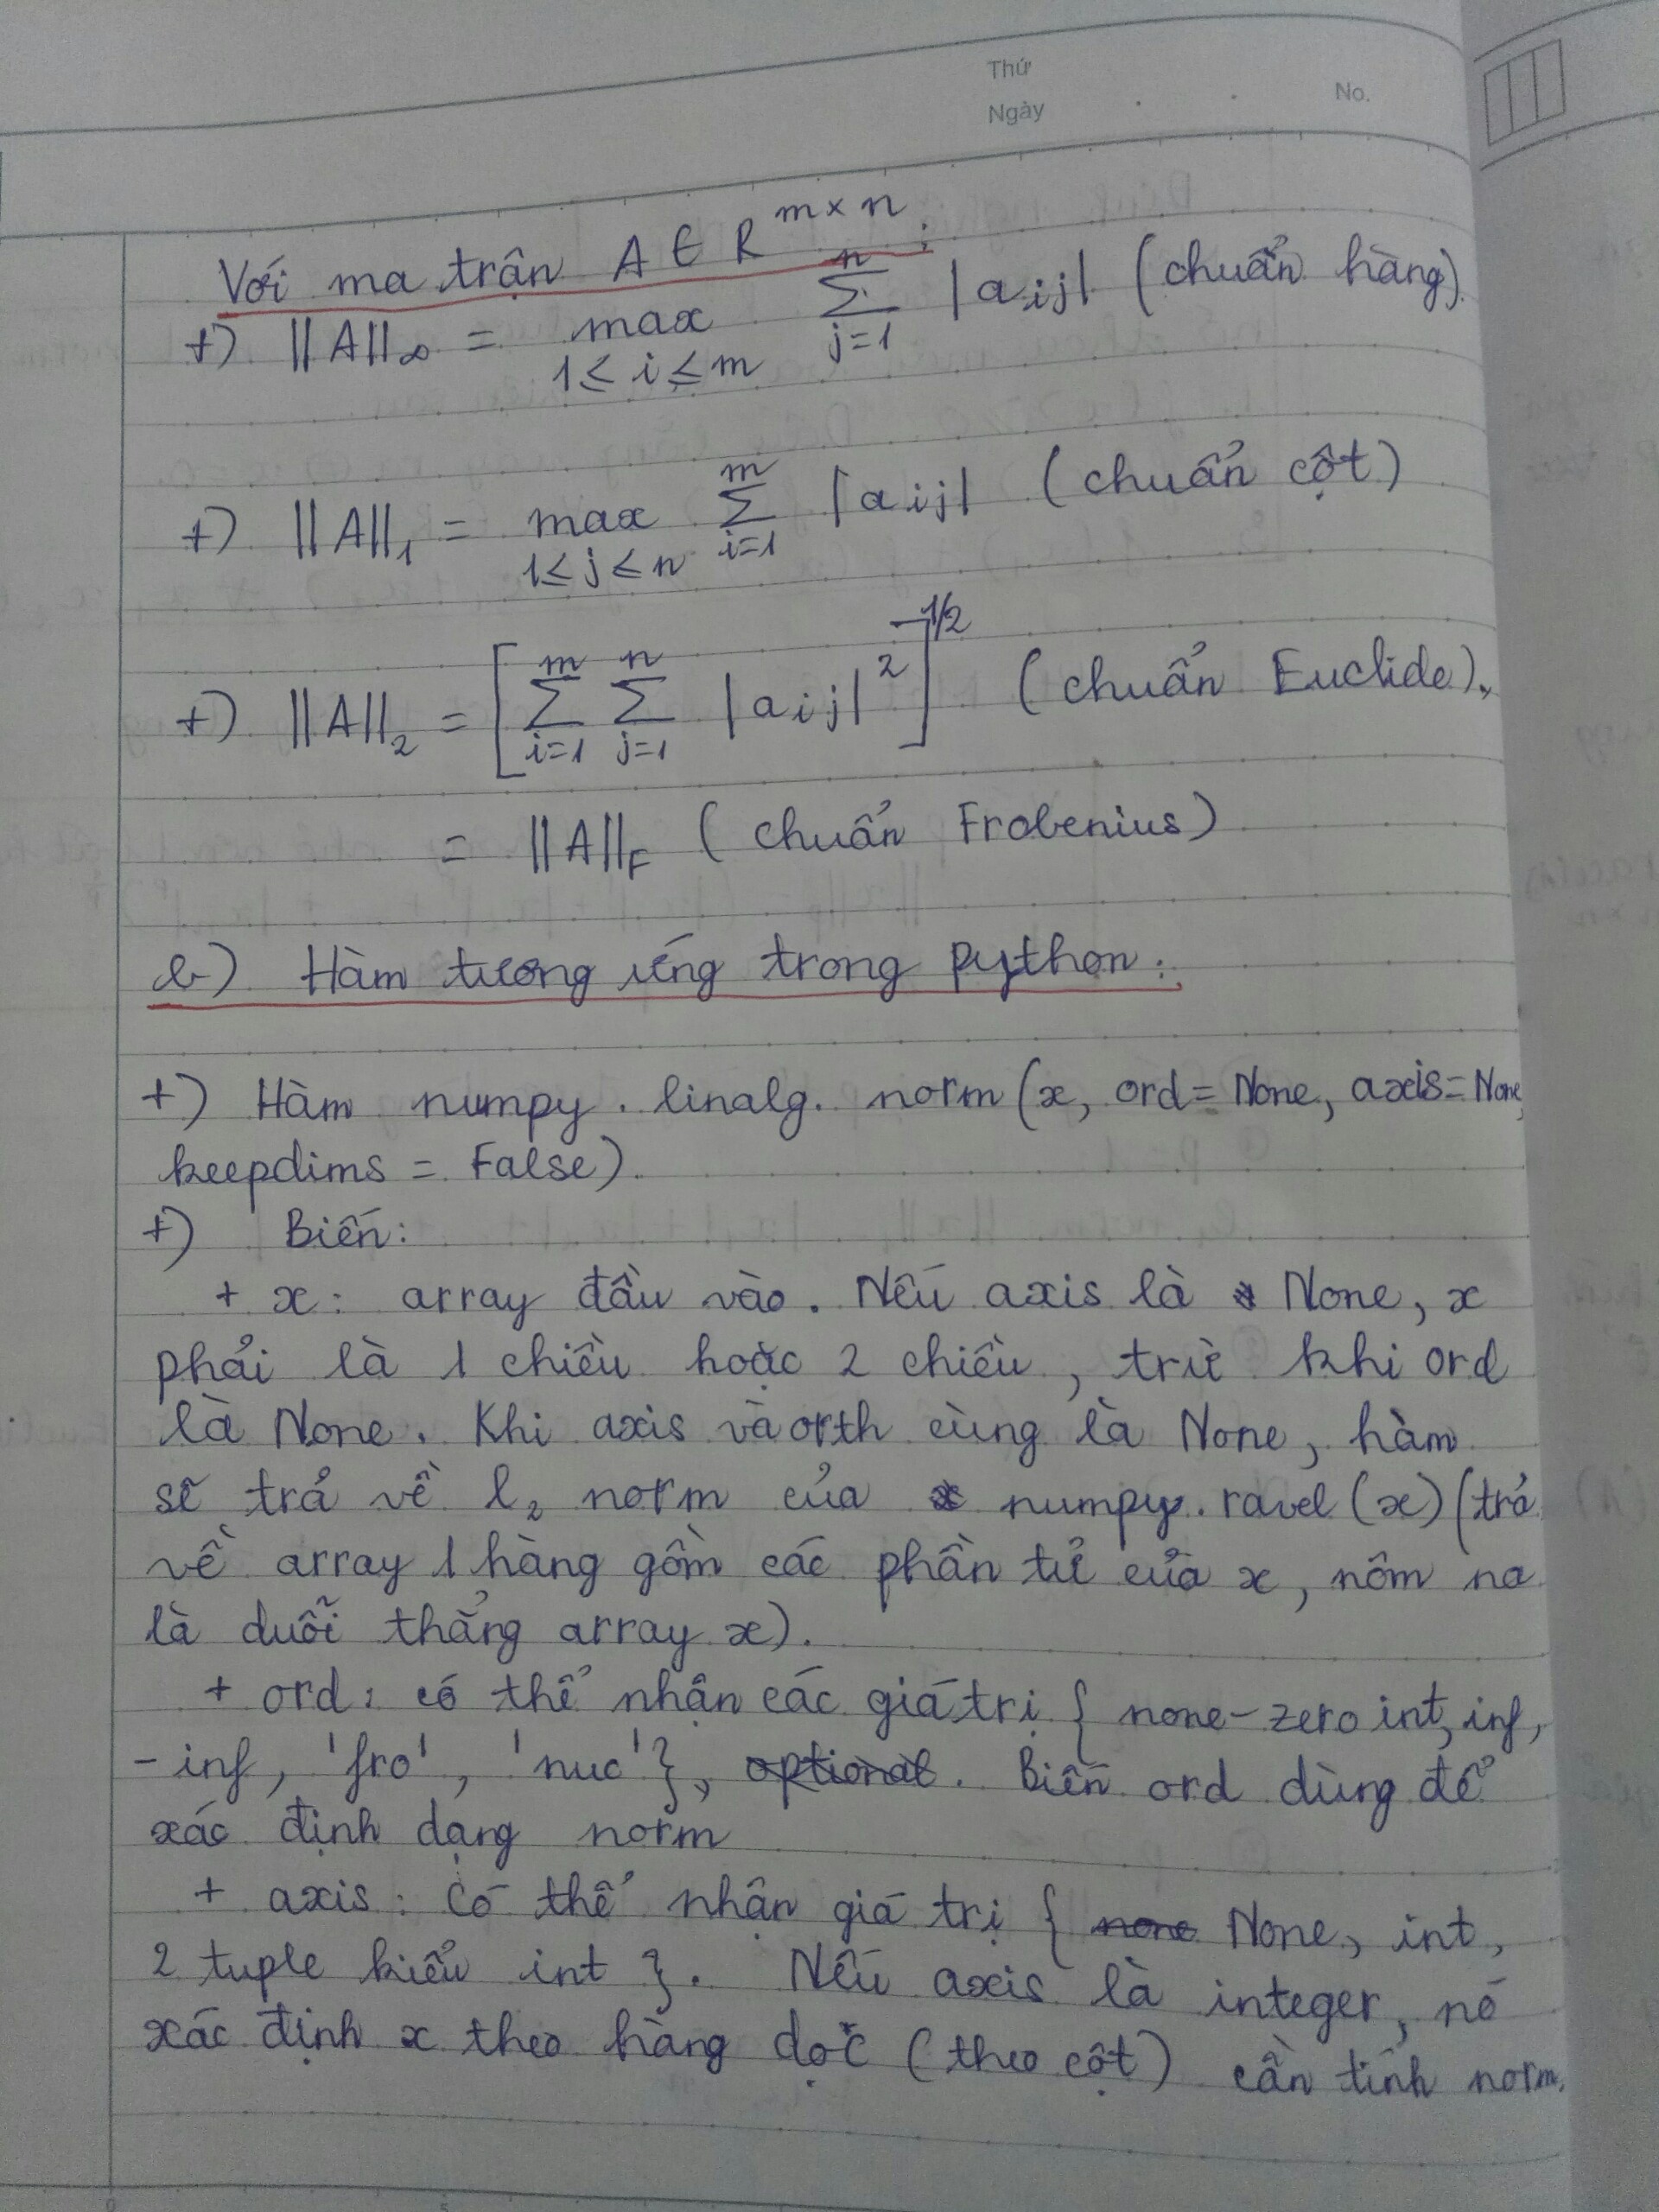 Thứ
Ngày
No.
Với ma trận A ∈ R^{m×n}:
+) ||A||_∞ = max_{1≤i≤m} ∑_{j=1}^{n} |a_{ij}| (chuẩn hàng).
+) ||A||_1 = max_{1≤j≤n} ∑_{i=1}^{m} |a_{ij}| (chuẩn cột)
+) ||A||_2 = [∑_{i=1}^{m} ∑_{j=1}^{n} |a_{ij}|^2]^{1/2} (chuẩn Euclide),
= ||A||_F (chuẩn Frobenius)
b) Hàm tương ứng trong python:
+) Hàm numpy.linalg.norm(x, ord=None, axis=None,
keepdims = False).
+) Biến:
+ x: array đầu vào. Nếu axis là None, x
phải là 1 chiều hoặc 2 chiều, trừ khi ord
là None. Khi axis và orth cùng là None, hàm
sẽ trả về l_2 norm của numpy.ravel(x) (trả
về array 1 hàng gồm các phần tử của x, nôm na
là duỗi thẳng array x).
+ ord: có thể nhận các giá trị { none-zero int, inf,
-inf, 'fro', 'nuc'}, optional. Biến ord dùng để
xác định dạng norm
+ axis: Có thể nhận giá trị { none None, int,
2 tuple kiểu int }. Nếu axis là integer, nó
xác định x theo hàng dọc (theo cột) cần tính norm.
0
5